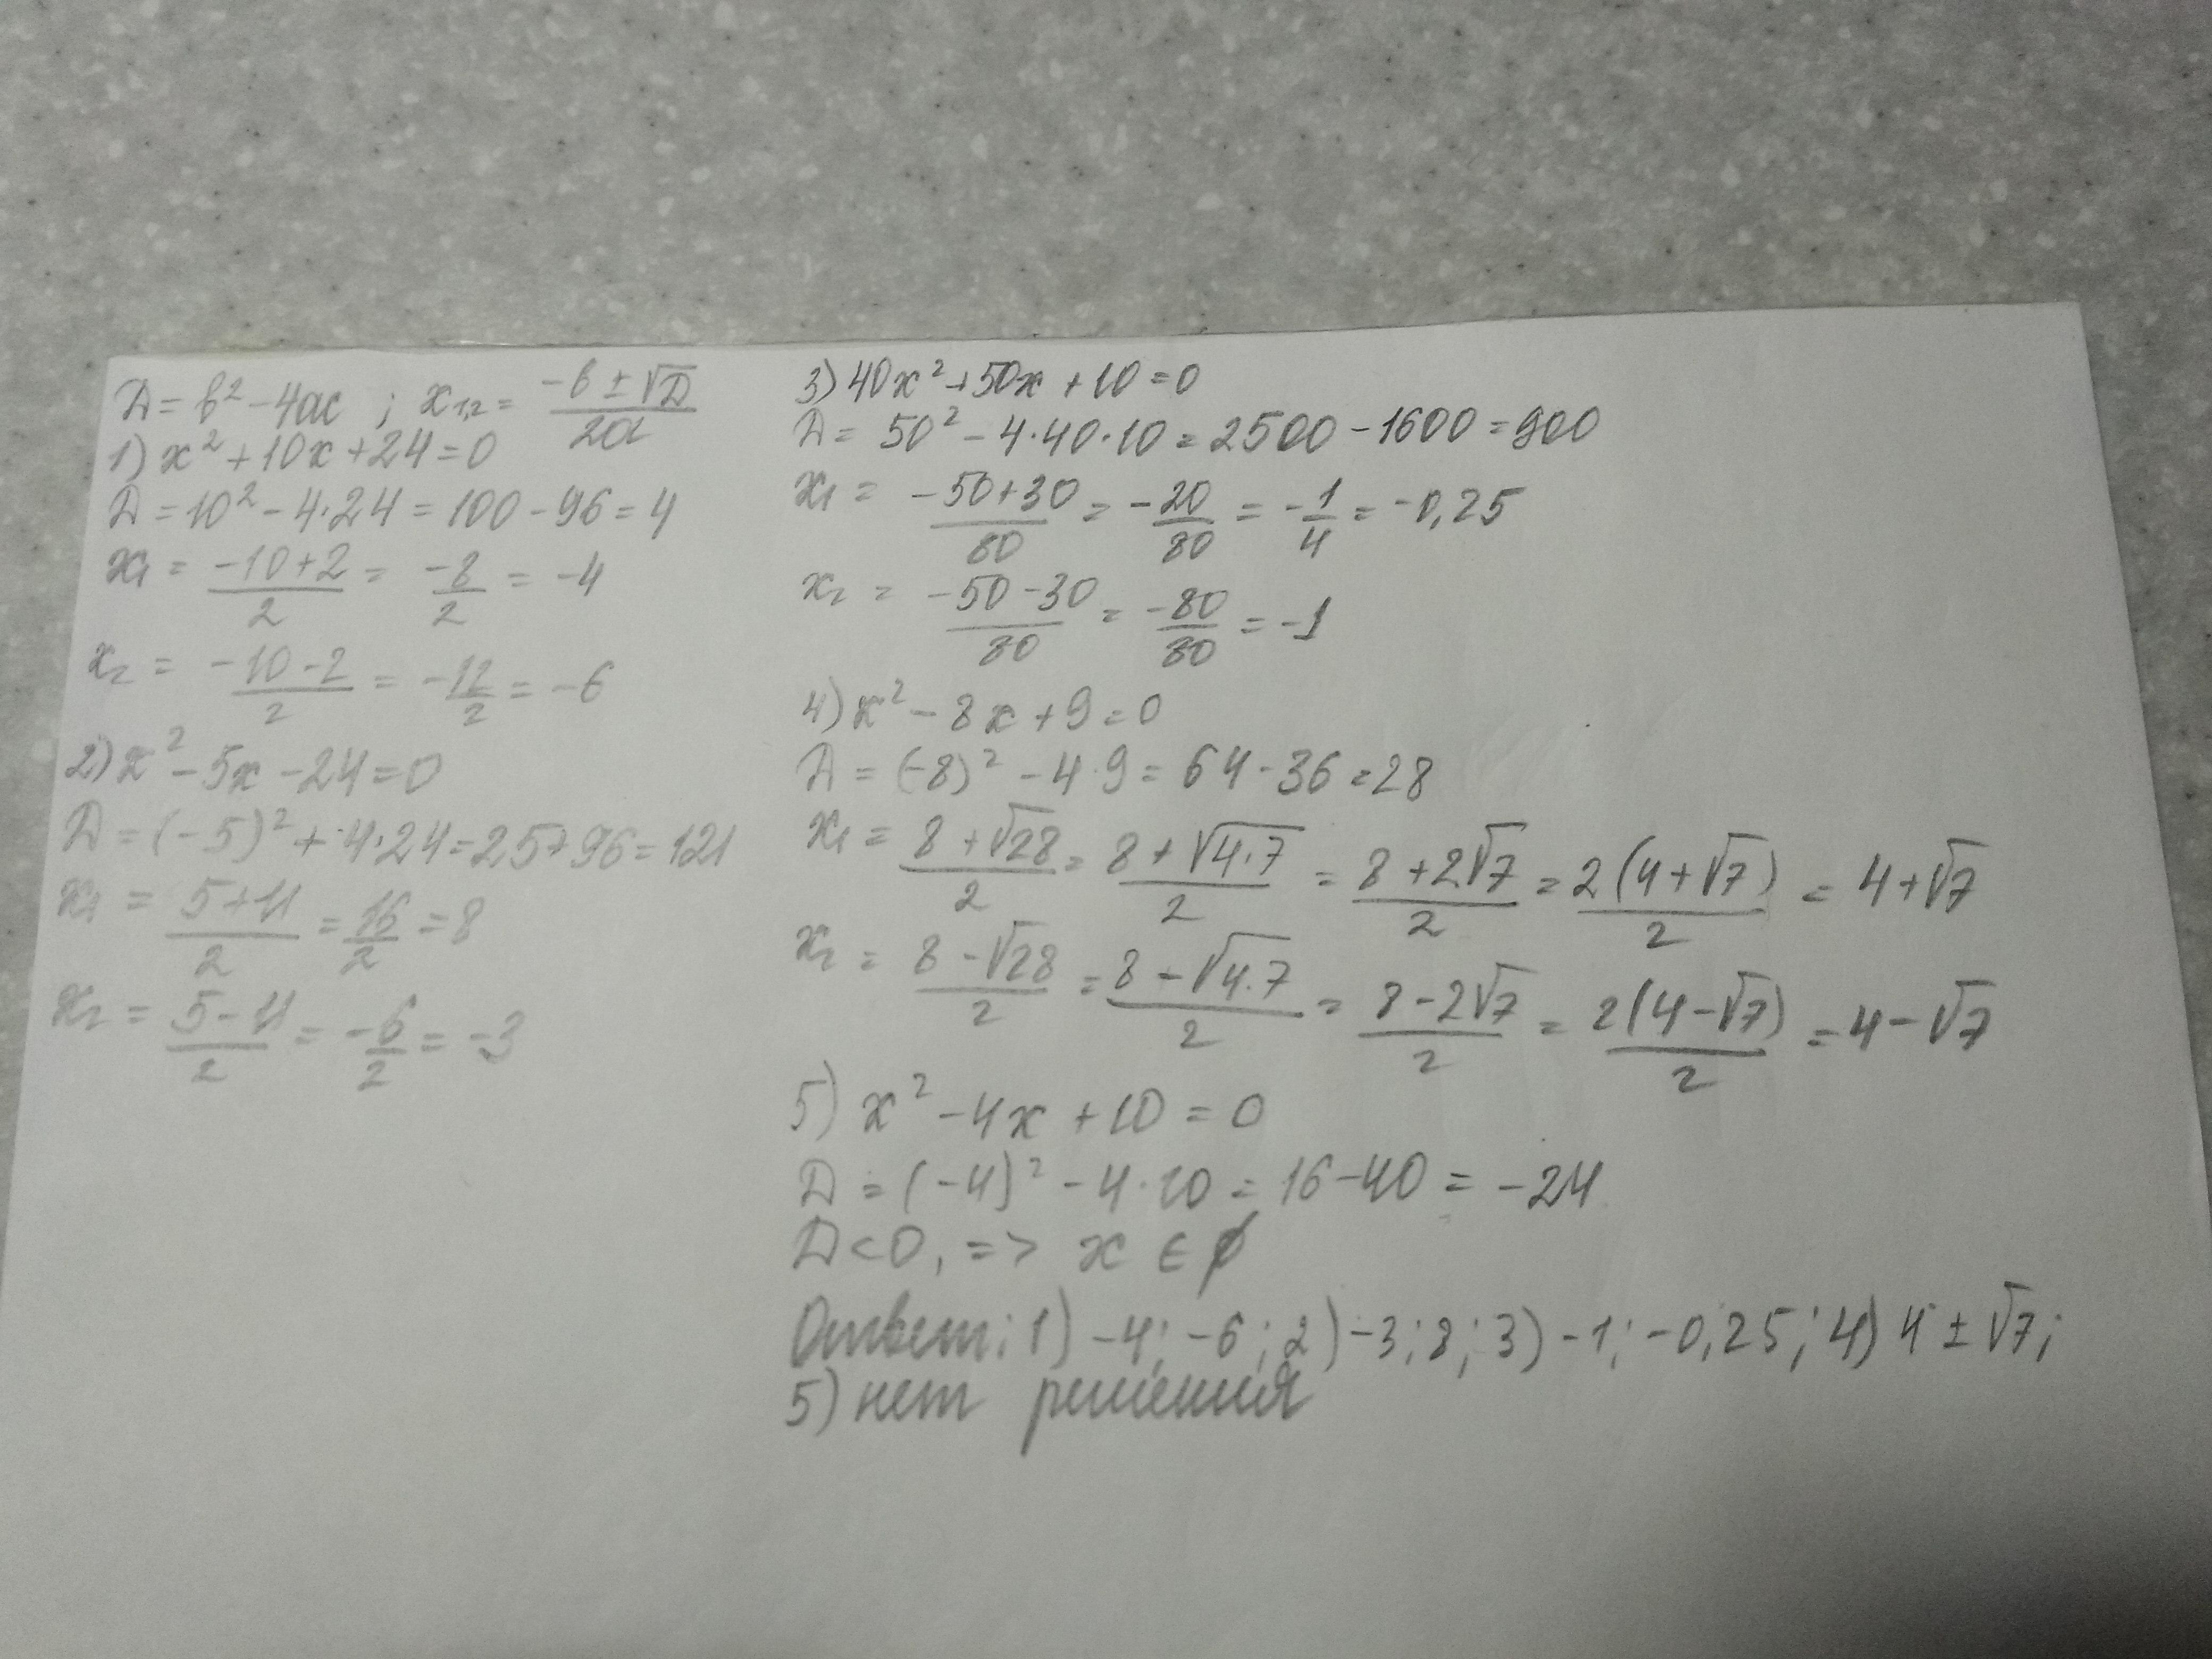 D = b² - 4ac ; x₁,₂ = (-b ± √D)/(2a)
1) x² + 10x + 24 = 0
D = 10² - 4·24 = 100 - 96 = 4
x₁ = (-10+2)/2 = -8/2 = -4
x₂ = (-10-2)/2 = -12/2 = -6
2) x² - 5x - 24 = 0
D = (-5)² + 4·24 = 25+96 = 121
x₁ = (5+11)/2 = 16/2 = 8
x₂ = (5-11)/2 = -6/2 = -3
3) 40x² + 50x + 10 = 0
D = 50² - 4·40·10 = 2500 - 1600 = 900
x₁ = (-50+30)/80 = -20/80 = -1/4 = -0,25
x₂ = (-50-30)/80 = -80/80 = -1
4) x² - 8x + 9 = 0
D = (-8)² - 4·9 = 64 - 36 = 28
x₁ = (8+√28)/2 = (8+√(4·7))/2 = (8+2√7)/2 = 2(4+√7)/2 = 4+√7
x₂ = (8-√28)/2 = (8-√(4·7))/2 = (8-2√7)/2 = 2(4-√7)/2 = 4-√7
5) x² - 4x + 10 = 0
D = (-4)² - 4·10 = 16 - 40 = -24
D < 0, => x ∈ ∅
Ответ: 1) -4; -6; 2) -3; 8; 3) -1; -0,25; 4) 4 ± √7;
5) нет решения